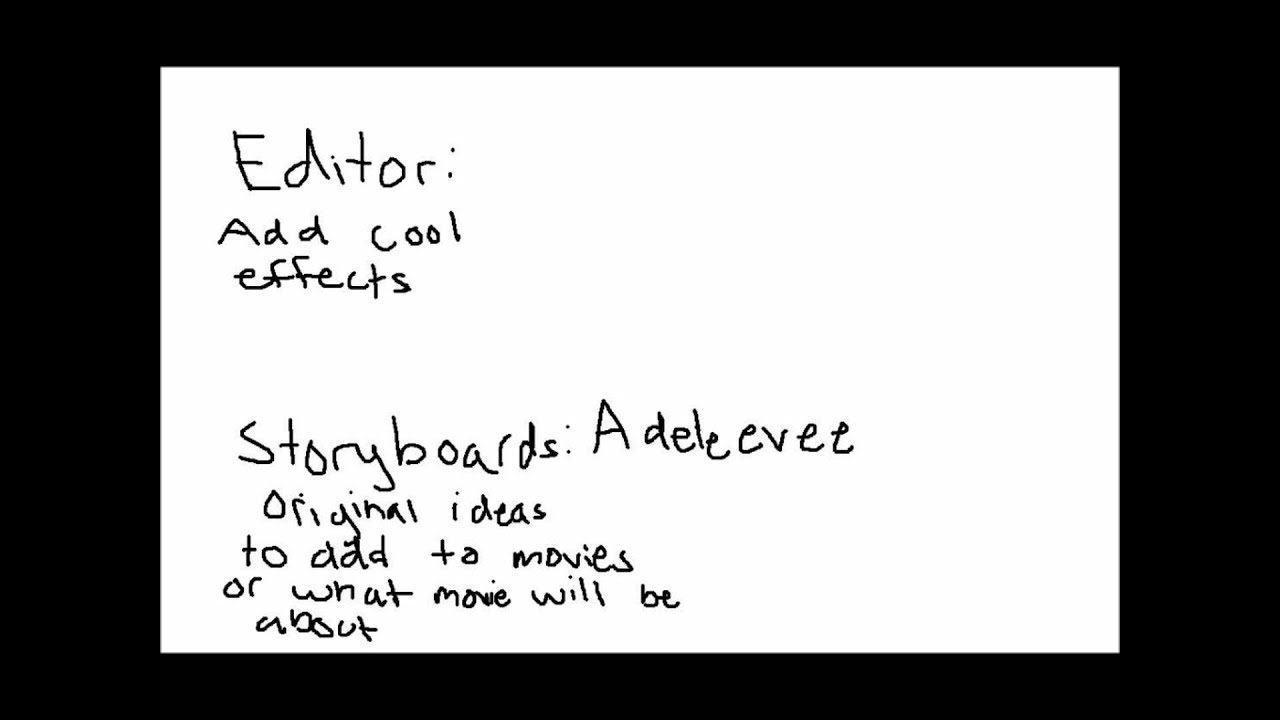 Editor:
Add cool
effects
Storyboards: Adeleevee
Original ideas
to add to movies
or what movie will be
about